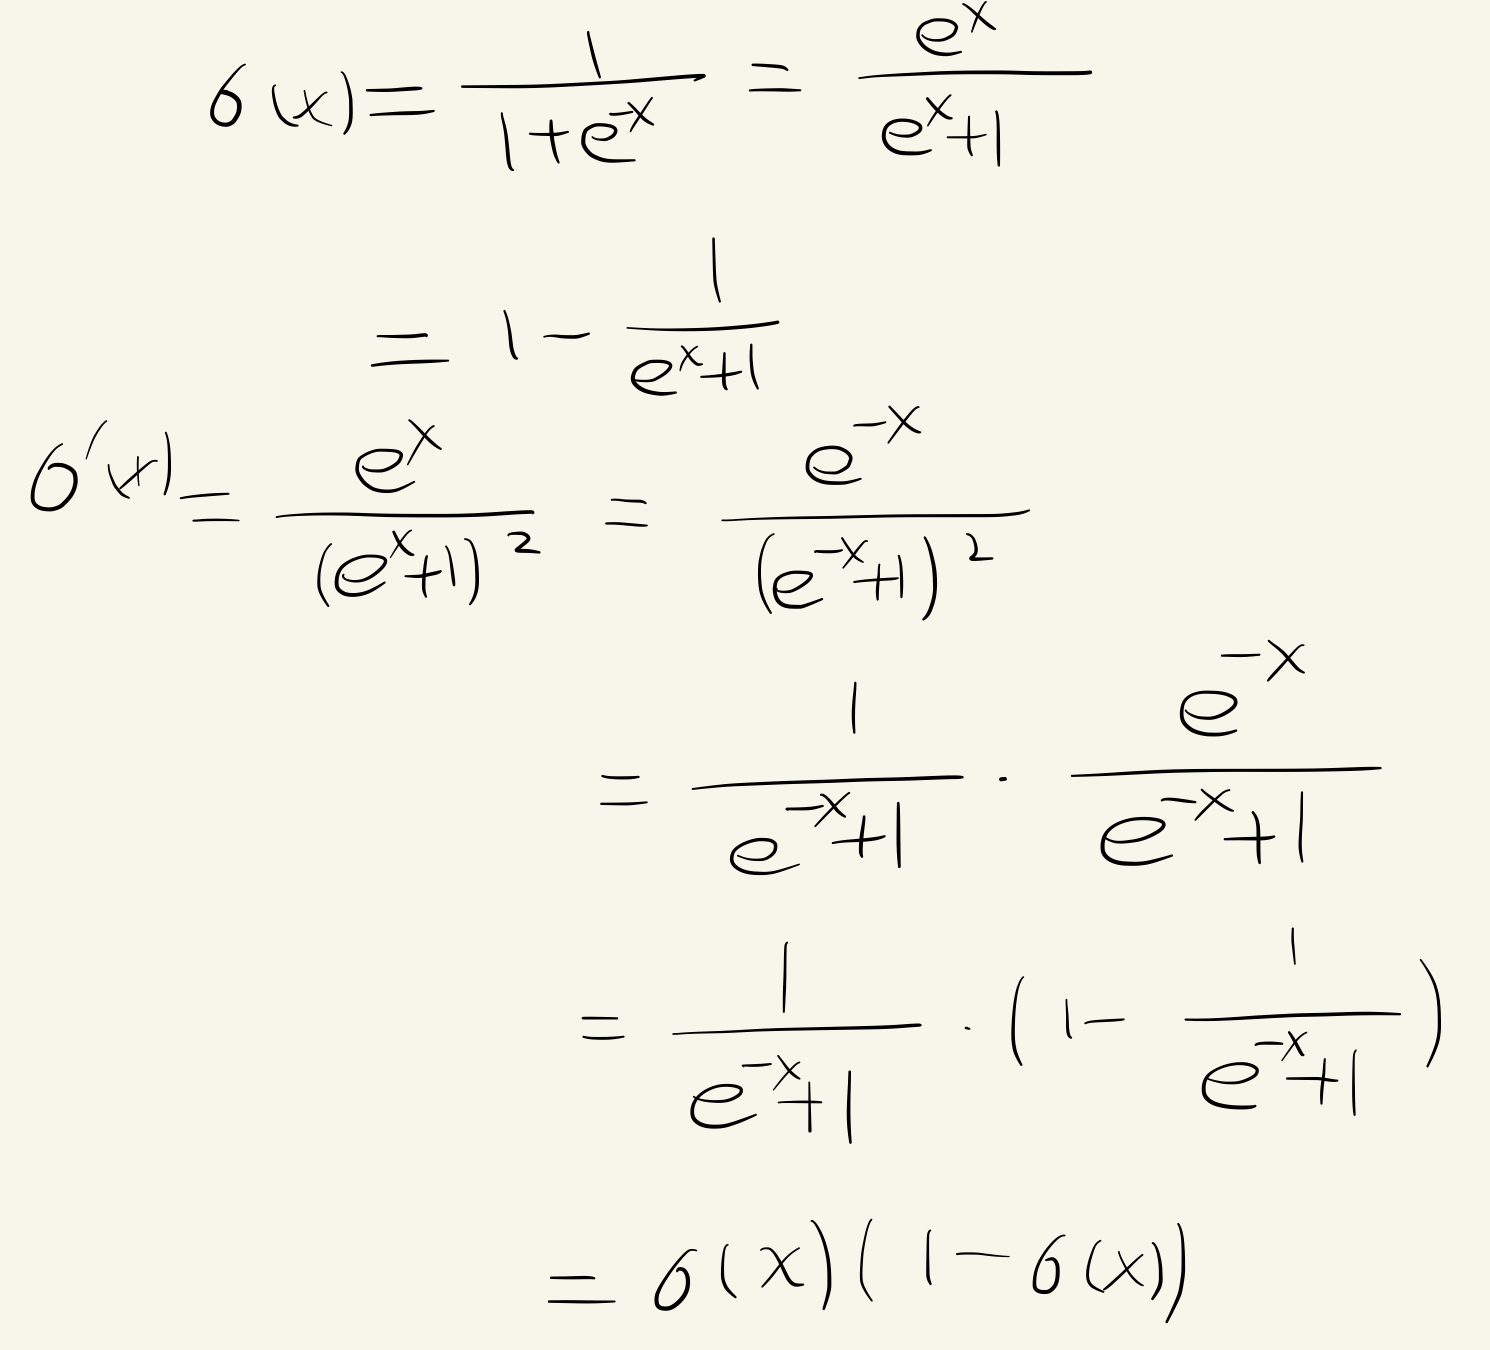 σ(x) = 1/(1+e^{-x}) = e^x/(e^x+1)
= 1 - 1/(e^x+1)
σ'(x) = e^x/(e^x+1)^2 = e^{-x}/(e^{-x}+1)^2
= 1/(e^{-x}+1) · e^{-x}/(e^{-x}+1)
= 1/(e^{-x}+1) · (1 - 1/(e^{-x}+1))
= σ(x)(1-σ(x))